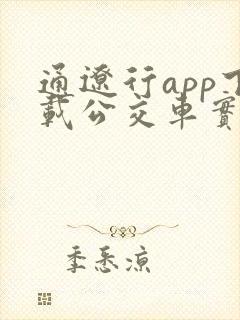 通遼行app下
載公交車實
季悉涼